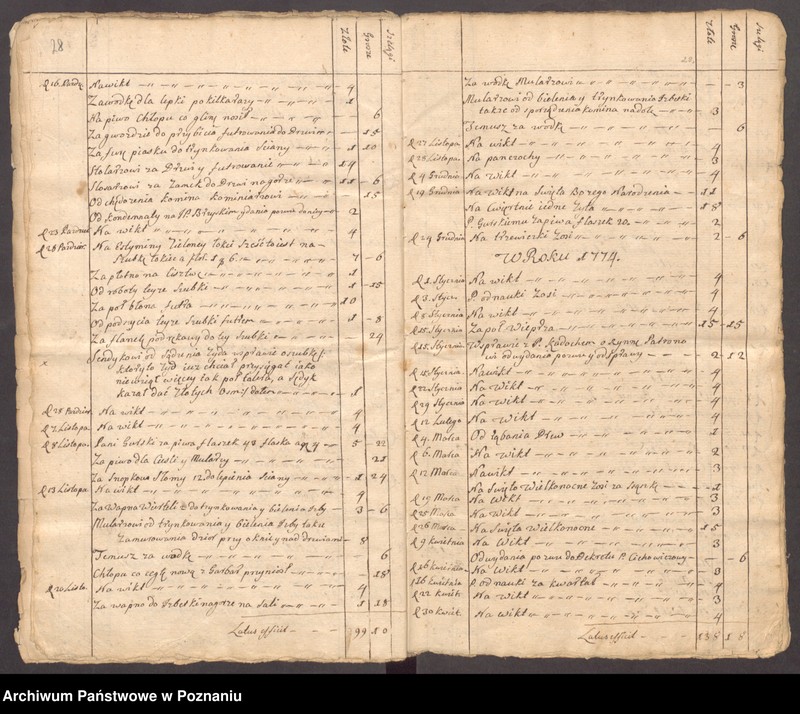 28
Złote
Grosze
Szelągi
d. 16. Paźdz. Na wikt 4
Za wodkę dla lepki po kilka razy 1
Na piwo Chłopu co glinę nosił 6
Za gwozdzie do przybicia futrowania do Drzwi 15
Za furę piasku do trynkowania Sciany 1 10
Stolarzowi za Drzwi y futrowanie 14
Slosarzowi za Zamek do Drzwi na gorze 11 6
Od chędożenia komina kominiarzowi 15
Od kondemnaty na JP. 2
d. 23 Na wikt 4
d. 28 Na zielone łokci sześć
Szubkę łokiec a flor. 1 g 6 7 6
Za płotno na 1
Od roboty teyze Szubki 1 15
Za poł błona futra 10
Od podszycia teyze Szubki futrem 1 8
Za flanelę pod rękawy do tey Szubki 24
Sendykowi od Sądzenia Zyda w sprawie o szubkę
ktory to Zyd iuz chciał przysięgac iako
nie wziął więcey tak poł talara, a Sędyk
kazał dac Złotych Osm, 1
d. 28 Na wikt 4
d. 7 Listopa. Na wikt 4
d. 8 Listopa. Pani Gurski za piwa flaszek 43 flaszka a gr 4 5 22
Za piwo dla Cieśli y Mularzy 21
Za Snopkow Słomy 12 do lepienia Sciany 1 24
d. 13 Listopa. Na wikt 4
Za Wapna Wierteli 2 do trynkowania y bielenia Izby 3 6
Mularzowi od trynkowania y bielenia Izby także
Zamurowania Dziur przy oknie y nad drzwiami 8
Temusz za wodkę 6
Chłopu co cegłę nową z Garbar przyniosł 18
d. 20 Listo. Na wikt 4
Za wapno do Izbetki na gorze na Sali 1 18
Latus efficit 99 10
Złote
Grosze
Szelągi
Za wodkę Mularzowi 3
Mularzowi od bielenia y trynkowania Izbetki
takze od sporządzenia komina na dole 3
Temusz za wodkę 6
d. 27 Listopa. Na wikt 4
d. 28 Listopa. Na panczochy 3
d. 4 Grudnia Na wikt 4
d. 19 Grudnia Na Wikt na Swięta Bozego Narodzenia 11
Na Cwiertnie iedne Zyta 18
P. Gurskiemu za piwa flaszek 20 2
d. 29 Grudnia Na trzewiczki Zosi 2 6
W Roku 1774.
d. 1 Stycznia Na wikt 4
d. 3 Stycz. P. od nauki Zosi 4
d. 8 Stycznia Na wikt 4
d. 15 Stycznia Za poł Wieprza 15 15
d. 15. Stycznia W sprawie z P. Kadochem o Rynnę Patrono
wi od wydania pozwu y od sprawy 2 12
Stycznia Na wikt 4
d. 22 Stycznia Na wikt 4
d. 29 Stycznia Na Wikt 4
d. 12 Lutego Na Wikt 4
d. 4. Marca Od rąbania Drew 1
d. 6. Marca Na wikt 2
d. 12 Marca Na wikt 3
Na Swięta Wielkonocne Zosi za 1
d. 19 Marca Na wikt 3
d. 25 Marca Na wikt 3
d. 26 Marca Na Swięta Wielkonocne 15
d. 9 kwietnia Na Wikt 3
Od wydania pozwu do Dekretu P. Ciechowiczowy 6
d. 16 kwietnia Na Wikt 3
d. 16 kwietnia P. od nauki za kwartał 4
d. 22 kwiet. Na wikt 3
d. 30 kwiet. Na wikt 4
Latus efficit 138 18
Archiwum Państwowe w Poznaniu